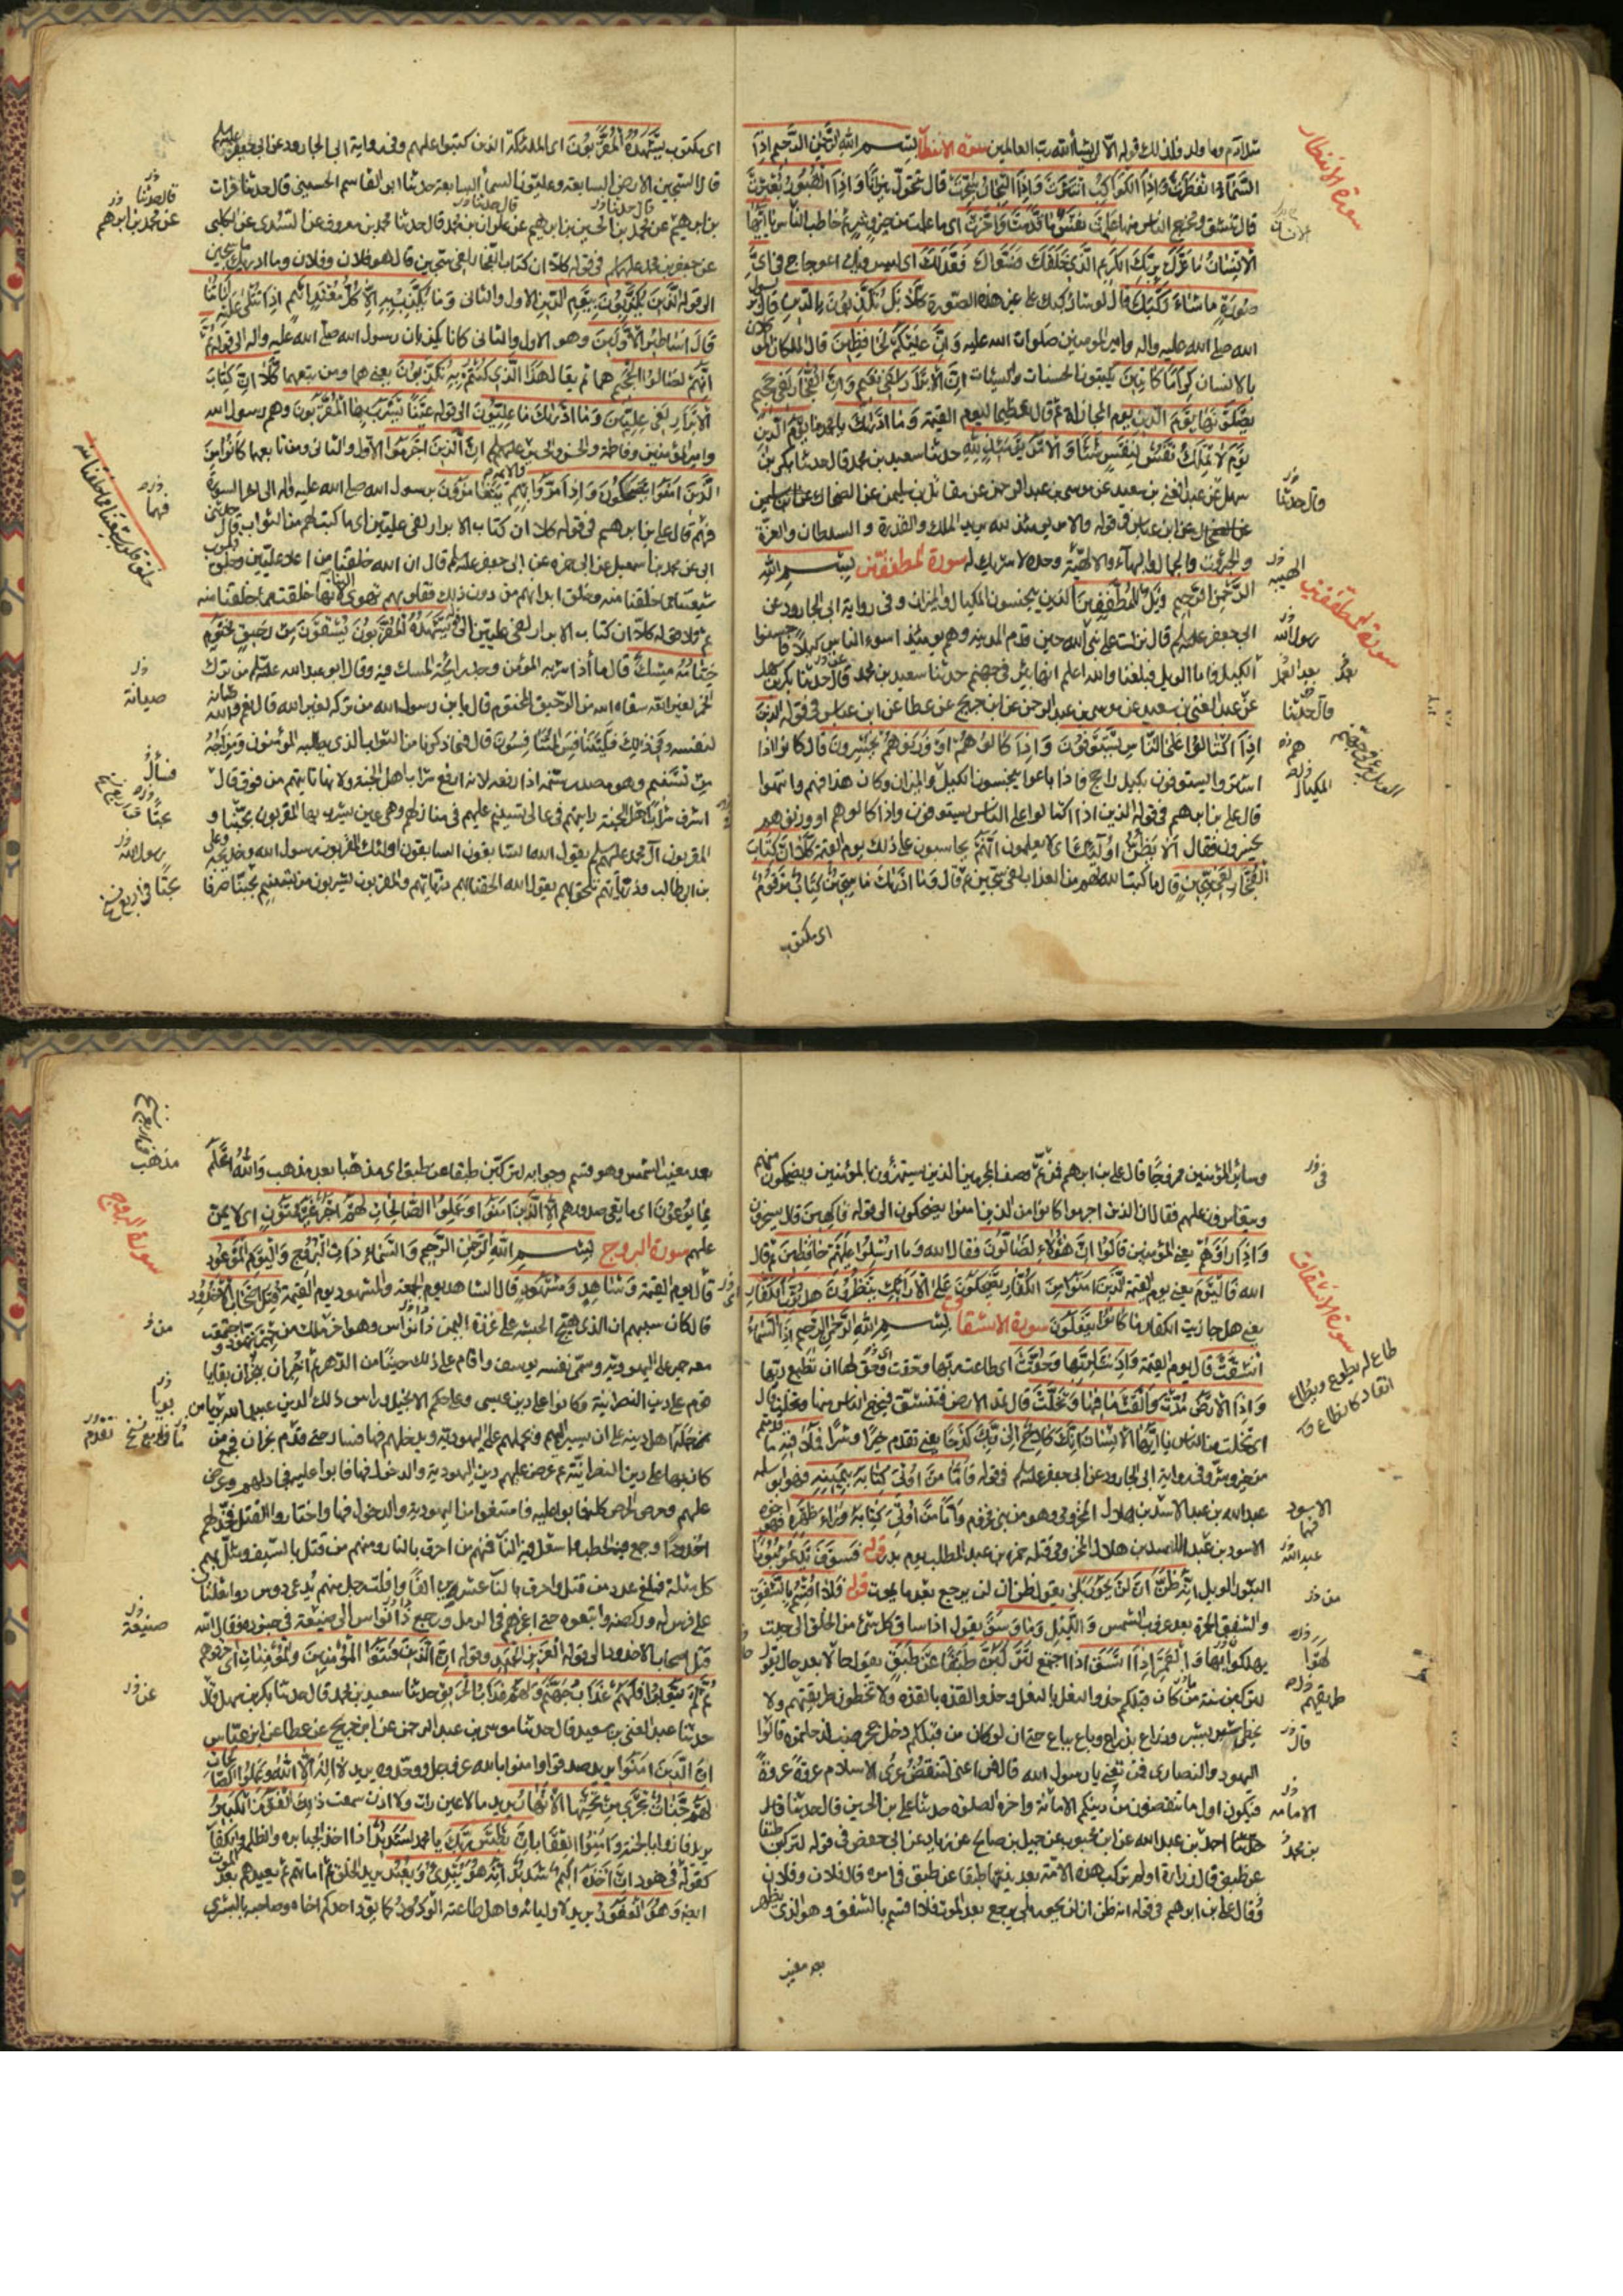 سورة الانفطار بسم الله الرحمن الرحيم اذا
السَّمَاءُ انْفَطَرَتْ وَاِذَا الْكَوَاكِبُ انْتَثَرَتْ وَاِذَا الْبِحَارُ فُجِّرَتْ قال تحول نيرانا وَاِذَا الْقُبُورُ بُعْثِرَتْ
قال تنشق ويخرج الناس منها عَلِمَتْ نَفْسٌ مَا قَدَّمَتْ وَاَخَّرَتْ اى ما عملت من خير وشر ثم خاطب الناس يَا اَيُّهَا
الْاِنْسَانُ مَا غَرَّكَ بِرَبِّكَ الْكَرِيمِ الَّذِي خَلَقَكَ فَسَوَّاكَ فَعَدَلَكَ اى ليس فيك اعوجاج فِي اَيِّ
صُورَةٍ مَا شَاءَ رَكَّبَكَ قال لو شاء ركبك على غير هذه الصورة كَلَّا بَلْ تُكَذِّبُونَ بِالدِّينِ قال
الله صلى الله عليه واله وامير المؤمنين صلوات الله عليه وَاِنَّ عَلَيْكُمْ لَحَافِظِينَ قال الملكان
بالانسان كِرَامًا كَاتِبِينَ يكتبون الحسنات والسيئات اِنَّ الْاَبْرَارَ لَفِي نَعِيمٍ وَاِنَّ الْفُجَّارَ لَفِي جَحِيمٍ
يَصْلَوْنَهَا يَوْمَ الدِّينِ يوم المجازاة ثم قال تعظيما ليوم القيمة وَمَا اَدْرَاكَ يا محمد مَا يَوْمُ الدِّينِ
يَوْمَ لَا تَمْلِكُ نَفْسٌ لِنَفْسٍ شَيْئًا وَالْاَمْرُ يَوْمَئِذٍ لِلَّهِ حدثنا سعيد بن محمد قال حدثنا بكر بن
سهل عن عبد الغنى بن سعيد عن موسى بن عبد الرحمن عن مقاتل بن سليمن عن الضحاك
عن ابن عباس فى قوله والامر يومئذ لله يريد الملك والقدرة والسلطان والعزة
والجبروت والجمال والبهاء والالهية وحده لا شريك له سورة المطففين بسم الله
الرحمن الرحيم وَيْلٌ لِلْمُطَفِّفِينَ الذين يبخسون المكيال والميزان وفى رواية ابى الجارود عن
ابى جعفر عليه السلم قال نزلت على نبى الله حين قدم المدينة وهم يومئذ اسوء الناس كيلا فاحسنوا
الكيل واما الويل فبلغنا والله اعلم انها بئر فى جهنم حدثنا سعيد بن محمد قال حدثنا بكر بن سهل
عن عبد الغنى بن سعيد عن موسى بن عبد الرحمن عن ابن جريج عن عطا عن ابن عباس فى قوله الذين
اِذَا اكْتَالُوا عَلَى النَّاسِ يَسْتَوْفُونَ وَاِذَا كَالُوهُمْ اَوْ وَزَنُوهُمْ يُخْسِرُونَ قال كانوا اذا
اشتروا يستوفون بكيل راجح فاذا باعوا يبخسوا الكيل والميزان وكان هذا فيهم وانتهوا
قال على بن ابرهيم فى قوله الذين اذا اكتالوا على الناس يستوفون واذا كالوهم او وزنوهم
يخسرون فقال اَلَا يَظُنُّ اُولَئِكَ اى لا يعلمون اَنَّهُمْ يحاسبون على ذلك يوم القيمة كَلَّا اِنَّ كِتَابَ
الْفُجَّارِ لَفِي سِجِّينٍ قال ما كتب الله لهم من العذاب لفى سجين ثم قال وَمَا اَدْرَاكَ مَا سِجِّينٌ كِتَابٌ مَرْقُومٌ
اى مكتوب
سورة الانفطار
سورة المطففين
اى مكتوب يَشْهَدُهُ الْمُقَرَّبُونَ اى الملئكة الذين كتبوا عليهم وفى رواية ابى الجارود عن ابى جعفر
قال السجين الارض السابعة وعليون السماء السابعة حدثنا ابو القاسم الحسينى قال حدثنا فرات
بن ابرهيم عن محمد بن الحسين بن ابرهيم عن علوان بن محمد قال حدثنا محمد بن معروف عن السدى عن الكلبى
عن جعفر بن محمد عليهما السلم فى قوله كلا ان كتاب الفجار لفى سجين قال هو فلان وفلان وما ادريك ما سجين
الى قوله الَّذِينَ يُكَذِّبُونَ بِيَوْمِ الدِّينِ الاول والثانى وَمَا يُكَذِّبُ بِهِ اِلَّا كُلُّ مُعْتَدٍ اَثِيمٍ اِذَا تُتْلَى عَلَيْهِ آيَاتُنَا
قَالَ اَسَاطِيرُ الْاَوَّلِينَ وهو الاول والثانى كانا يكذبان رسول الله صلى الله عليه واله الى قوله ثُمَّ
اِنَّهُمْ لَصَالُوا الْجَحِيمِ هما ثم يقال هَذَا الَّذِي كُنْتُمْ بِهِ تُكَذِّبُونَ يعنى هما ومن تبعهما كَلَّا اِنَّ كِتَابَ
الْاَبْرَارِ لَفِي عِلِّيِّينَ وَمَا اَدْرَاكَ مَا عِلِّيُّونَ الى قوله عَيْنًا يَشْرَبُ بِهَا الْمُقَرَّبُونَ وهم رسول الله
وامير المؤمنين وفاطمة والحسن والحسين عليهم السلم اِنَّ الَّذِينَ اَجْرَمُوا الاول والثانى ومن تابعهما كَانُوا مِنَ
الَّذِينَ آمَنُوا يَضْحَكُونَ وَاِذَا مَرُّوا بِهِمْ يَتَغَامَزُونَ برسول الله صلى الله عليه واله الى اخر السورة
فيهم قال على بن ابرهيم فى قوله كلا ان كتاب الابرار لفى عليين اى ما كتب لهم من الثواب قال حدثنى
ابى عن محمد بن اسمعيل عن ابى حمزه عن ابى جعفر عليه السلم قال ان الله خلقنا من اعلا عليين وخلق قلوب
شيعتنا مما خلقنا منه وخلق ابدانهم من دون ذلك فقلوبهم تهوى الينا لانها خلقت مما خلقنا منه
ثم تلا قوله كلا ان كتاب الابرار لفى عليين الى يَشْهَدُهُ الْمُقَرَّبُونَ يُسْقَوْنَ مِنْ رَحِيقٍ مَخْتُومٍ
خِتَامُهُ مِسْكٌ قال ماء اذا شربه المؤمن وجد رايحة المسك فيه وقال ابو عبد الله عليه السلم من ترك
الخمر لغير الله سقاه الله من الرحيق المختوم قال يا بن رسول الله من تركه لغير الله قال نعم والله
لنفسه وَفِي ذَلِكَ فَلْيَتَنَافَسِ الْمُتَنَافِسُونَ قال فيما ذكرنا من الثواب الذى يطلبه المؤمنون وَمِزَاجُهُ
مِنْ تَسْنِيمٍ وهو مصدر سنمه اذا رفعه لانه ارفع شراب اهل الجنة ولانها تاتيهم من فوق قال
اشرف شراب اهل الجنة ياتيهم فى عالى تسنيم عليهم فى منازلهم وهى عين يشرب بها المقربون بحتا و
المقربون آل محمد عليهم السلم يقول الله السابقون السابقون اولئك المقربون رسول الله وخديجة وعلى
بن ابيطالب وذرياتهم تلحق بهم يقول الله الحقنا بهم ذرياتهم والمقربون يشربون من تسنيم بحتا صرفا
وسائر المؤمنين ممزوجا قال على بن ابرهيم ثم وصف المجرمين الذين يستهزؤن بالمؤمنين ويضحكون منهم
ويتغامزون عليهم فقال ان الذين اجرموا كانوا من الذين امنوا يضحكون الى قوله فاكهين قال يسخرون
وَاِذَا رَاَوْهُمْ يعنى المؤمنين قَالُوا اِنَّ هَؤُلَاءِ لَضَالُّونَ فقال الله وَمَا اُرْسِلُوا عَلَيْهِمْ حَافِظِينَ ثم قال
الله فَالْيَوْمَ يعنى يوم القيمة الَّذِينَ آمَنُوا مِنَ الْكُفَّارِ يَضْحَكُونَ عَلَى الْاَرَائِكِ يَنْظُرُونَ هَلْ ثُوِّبَ الْكُفَّارُ
يعنى هل جازيت الكفار مَا كَانُوا يَفْعَلُونَ سورة الانشقاق بسم الله الرحمن الرحيم اِذَا السَّمَاءُ
انْشَقَّتْ قال يوم القيمة وَاَذِنَتْ لِرَبِّهَا وَحُقَّتْ اى اطاعت ربها وحقت اى وحق لها ان تطيع ربها
وَاِذَا الْاَرْضُ مُدَّتْ وَاَلْقَتْ مَا فِيهَا وَتَخَلَّتْ قال تمد الارض فتنشق فيخرج الناس منها وتخلت قال
اى تخلت من الناس يَا اَيُّهَا الْاِنْسَانُ اِنَّكَ كَادِحٌ اِلَى رَبِّكَ كَدْحًا يعنى تقدم خيرا وشرا فَمُلَاقِيهِ ما قدم
من خير وشر وفى رواية ابى الجارود عن ابى جعفر عليه السلم فى قوله فَاَمَّا مَنْ اُوتِيَ كِتَابَهُ بِيَمِينِهِ فهو ابو سلمه
عبد الله بن عبد الاسد بن هلال المخزومى وهو من بنى مخزوم وَاَمَّا مَنْ اُوتِيَ كِتَابَهُ وَرَاءَ ظَهْرِهِ فهو اخوه
الاسود بن عبد الاسد بن هلال المخزومى قتله حمزه بن عبد المطلب يوم بدر قوله فَسَوْفَ يَدْعُو ثُبُورًا
الثبور الويل اِنَّهُ ظَنَّ اَنْ لَنْ يَحُورَ بَلَى يقول ظن ان لن يرجع بعد ما يموت قوله فَلَا اُقْسِمُ بِالشَّفَقِ
والشفق الحمرة بعد غروب الشمس وَاللَّيْلِ وَمَا وَسَقَ يقول اذا ساق كل شئ من الخلق الى حيث
يهلكوا بها وَالْقَمَرِ اِذَا اتَّسَقَ اذا اجتمع لَتَرْكَبُنَّ طَبَقًا عَنْ طَبَقٍ يقول حالا بعد حال يقول
لتركبن سنة من كان قبلكم حذو النعل بالنعل وحذو القذه بالقذه ولا تخطون طريقتهم ولا
يخطى شبر بشبر وذراع بذراع وباع بباع حتى ان لو كان من قبلكم دخل جحر ضب لدخلتموه قالوا
اليهود والنصارى فمن تعنى يا رسول الله قال فمن اعنى لتنقضن عرى الاسلام عروة عروة
فيكون اول ما تنقضون من دينكم الامانة واخره الصلوة حدثنا على بن الحسين قال حدثنا
احمد بن عبد الله عن ابن محبوب عن جميل بن صالح عن زياد عن ابى جعفر فى قوله لتركبن طبقا
عن طبق قال زرارة او لم تركب هذه الامة بعد نبيها طبقا عن طبق فى امر فلان وفلان
وقال على بن ابرهيم فى قوله انه ظن ان لن يحور بلى يرجع بعد الموت فلا اقسم بالشفق وهو الذى يظهر
بعد مغيب
سورة الانشقاق
بعد مغيب الشمس وهو قسم وجوابه لتركبن طبقا عن طبق اى مذهبا بعد مذهب وَاللَّهُ اَعْلَمُ
بِمَا يُوعُونَ اى ما يعى صدورهم اِلَّا الَّذِينَ آمَنُوا وَعَمِلُوا الصَّالِحَاتِ لَهُمْ اَجْرٌ غَيْرُ مَمْنُونٍ اى لا يمن
عليهم سورة البروج بسم الله الرحمن الرحيم وَالسَّمَاءِ ذَاتِ الْبُرُوجِ وَالْيَوْمِ الْمَوْعُودِ
قال يوم القيمة وَشَاهِدٍ وَمَشْهُودٍ قال الشاهد يوم الجمعة والمشهود يوم القيمة قُتِلَ اَصْحَابُ الْاُخْدُودِ
قال كان سببهم ان الذى هيج الحبشه على غزوة اليمن ذو نواس وهو اخر ملك من حمير تهود و
معه حمير على اليهودية وسمى نفسه يوسف واقام على ذلك حينا من الدهر ثم اخبر ان بنجران بقايا
قوم على دين النصرانية وكانوا على دين عيسى وعلى حكم الانجيل وراس ذلك الدين عبد الله بن يامن
فحمله اهل دينه على ان يسير اليهم ويحملهم على اليهودية ويدخلهم فيها فسار حتى قدم نجران فجمع من
كان بها على دين النصرانية ثم عرض عليهم دين اليهودية والدخول فيها فابوا عليه فجادلهم وعرض
عليهم وحرص الحرص كله فابوا عليه فامتنعوا من اليهودية والدخول فيها واختاروا القتل فخد لهم
اخدودا وجمع فيه الحطب واشعل فيه النار فمنهم من احرق بالنار ومنهم من قتل بالسيف ومثل بهم
كل مثلة فبلغ عدد من قتل واحرق بالنار عشرين الفا وافلت رجل منهم يدعى دوس ذو ثعلبان
على فرس له وركضه واتبعوه حتى اعجزهم فى الرمل ورجع ذو نواس الى ضيعته فى جنوده فقال الله
قتل اصحاب الاخدود الى قوله العزيز الحميد وقوله اِنَّ الَّذِينَ فَتَنُوا الْمُؤْمِنِينَ وَالْمُؤْمِنَاتِ اى احرقوهم
ثُمَّ لَمْ يَتُوبُوا فَلَهُمْ عَذَابُ جَهَنَّمَ وَلَهُمْ عَذَابُ الْحَرِيقِ حدثنا سعيد بن محمد قال حدثنا بكر بن سهل قال
حدثنا عبد الغنى بن سعيد قال حدثنا موسى بن عبد الرحمن عن ابن جريج عن عطا عن ابن عباس
اِنَّ الَّذِينَ آمَنُوا يريد صدقوا وامنوا بالله عز وجل ووحدوه يريد لا اله الا الله وَعَمِلُوا الصَّالِحَاتِ
لَهُمْ جَنَّاتٌ تَجْرِي مِنْ تَحْتِهَا الْاَنْهَارُ يريد ما لا عين رات ولا اذن سمعت ذَلِكَ الْفَوْزُ الْكَبِيرُ
يريد فازوا بالجنة وامنوا العقاب اِنَّ بَطْشَ رَبِّكَ يا محمد لَشَدِيدٌ اذا اخذ الجبابره والظلمة والكفار
كقوله فى هود اِنَّ اَخْذَهُ اَلِيمٌ شَدِيدٌ اِنَّهُ هُوَ يُبْدِئُ وَيُعِيدُ يريد الخلق ثم اماتهم ثم يعيدهم بعد الموت
ايضا وَهُوَ الْغَفُورُ يريد لاوليائه واهل طاعته الْوَدُودُ كما يود احدكم اخاه وصاحبه بالبشرى
سورة البروج